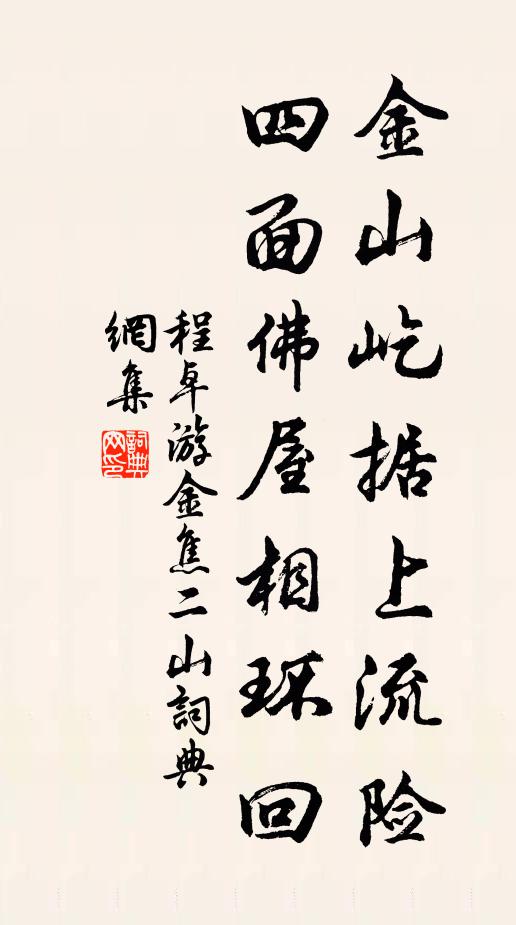 金山屹据上流险
四面佛屋相环回
程卓游金焦二山詞典
網集
詞典
网印